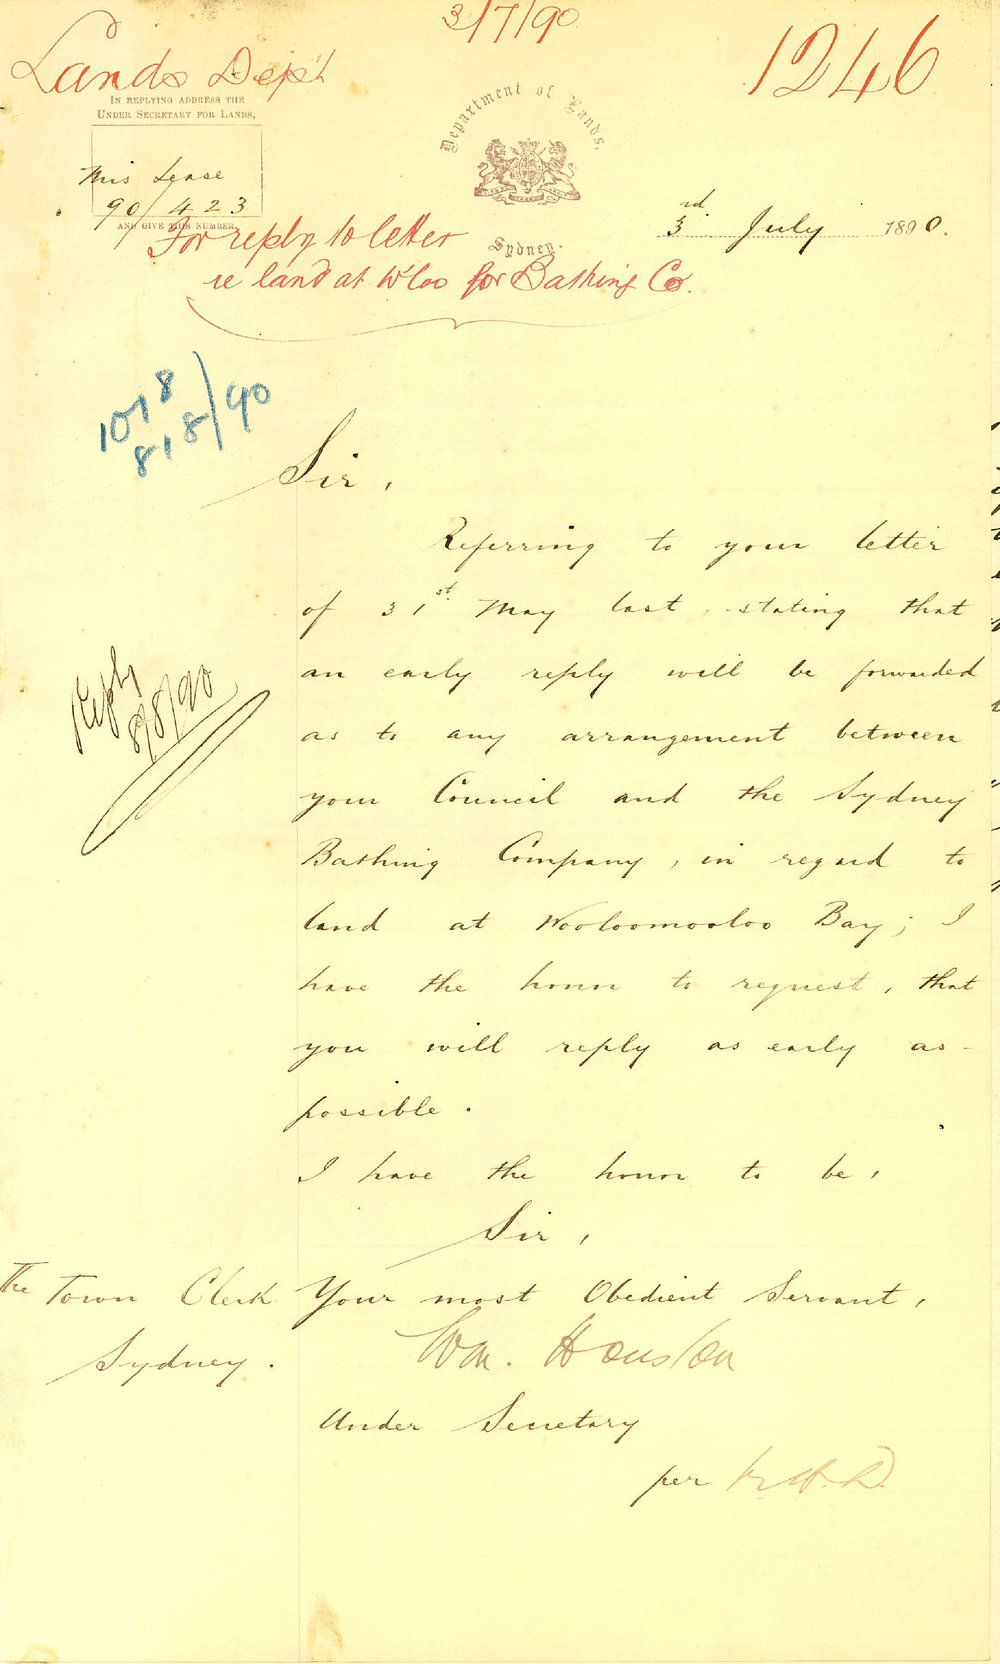 3/7/90
Lands Dep't
1246
IN REPLYING ADDRESS THE
UNDER SECRETARY FOR LANDS,
Mis Lease
90/423
AND GIVE THIS NUMBER.
Department of Lands,
Sydney.
3rd. July 1890.
For reply to letter
re land at W'loo for Bathing Co.
1078
8,8/90
Sir,
Referring to your letter
of 31st. May last, stating that
an early reply will be forwarded
as to any arrangement between
your Council and the Sydney
Bathing Company, in regard to
land at Wooloomooloo Bay; I
have the honor to request, that
you will reply as early as
possible.
Reply
8/8/90
I have the honor to be,
Sir,
Your most Obedient Servant,
Wm. Houston
Under Secretary
per
The Town Clerk
Sydney.